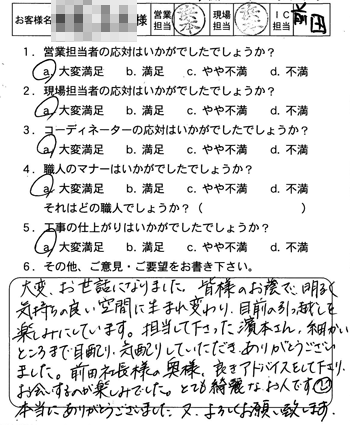 お客様名 様 営業担当 現場担当 IC担当 前田
1．営業担当者の応対はいかがでしたでしょうか？
a. 大変満足 b. 満足 c. やや不満 d. 不満
2．現場担当者の応対はいかがでしたでしょうか？
a. 大変満足 b. 満足 c. やや不満 d. 不満
3．コーディネーターの応対はいかがでしたでしょうか？
a. 大変満足 b. 満足 c. やや不満 d. 不満
4．職人のマナーはいかがでしたでしょうか？
a. 大変満足 b. 満足 c. やや不満 d. 不満
それはどの職人でしょうか？（ ）
5．工事の仕上がりはいかがでしたでしょうか？
a. 大変満足 b. 満足 c. やや不満 d. 不満
6．その他、ご意見・ご要望をお書き下さい。
大変、お世話になりました。皆様のお蔭で、明るく
気持ちの良い空間に生まれ変わり、目前の引っ越しを
楽しみにしています。担当して下さった濱本さん、細かい
ところまで目配り、気配りしていただきありがとうござい
ました。前田社長様の奥様、良きアドバイスをして下さり、
お会いするのが楽しみでした。とても綺麗なお人です
本当にありがとうございました。又、よろしくお願い致します。